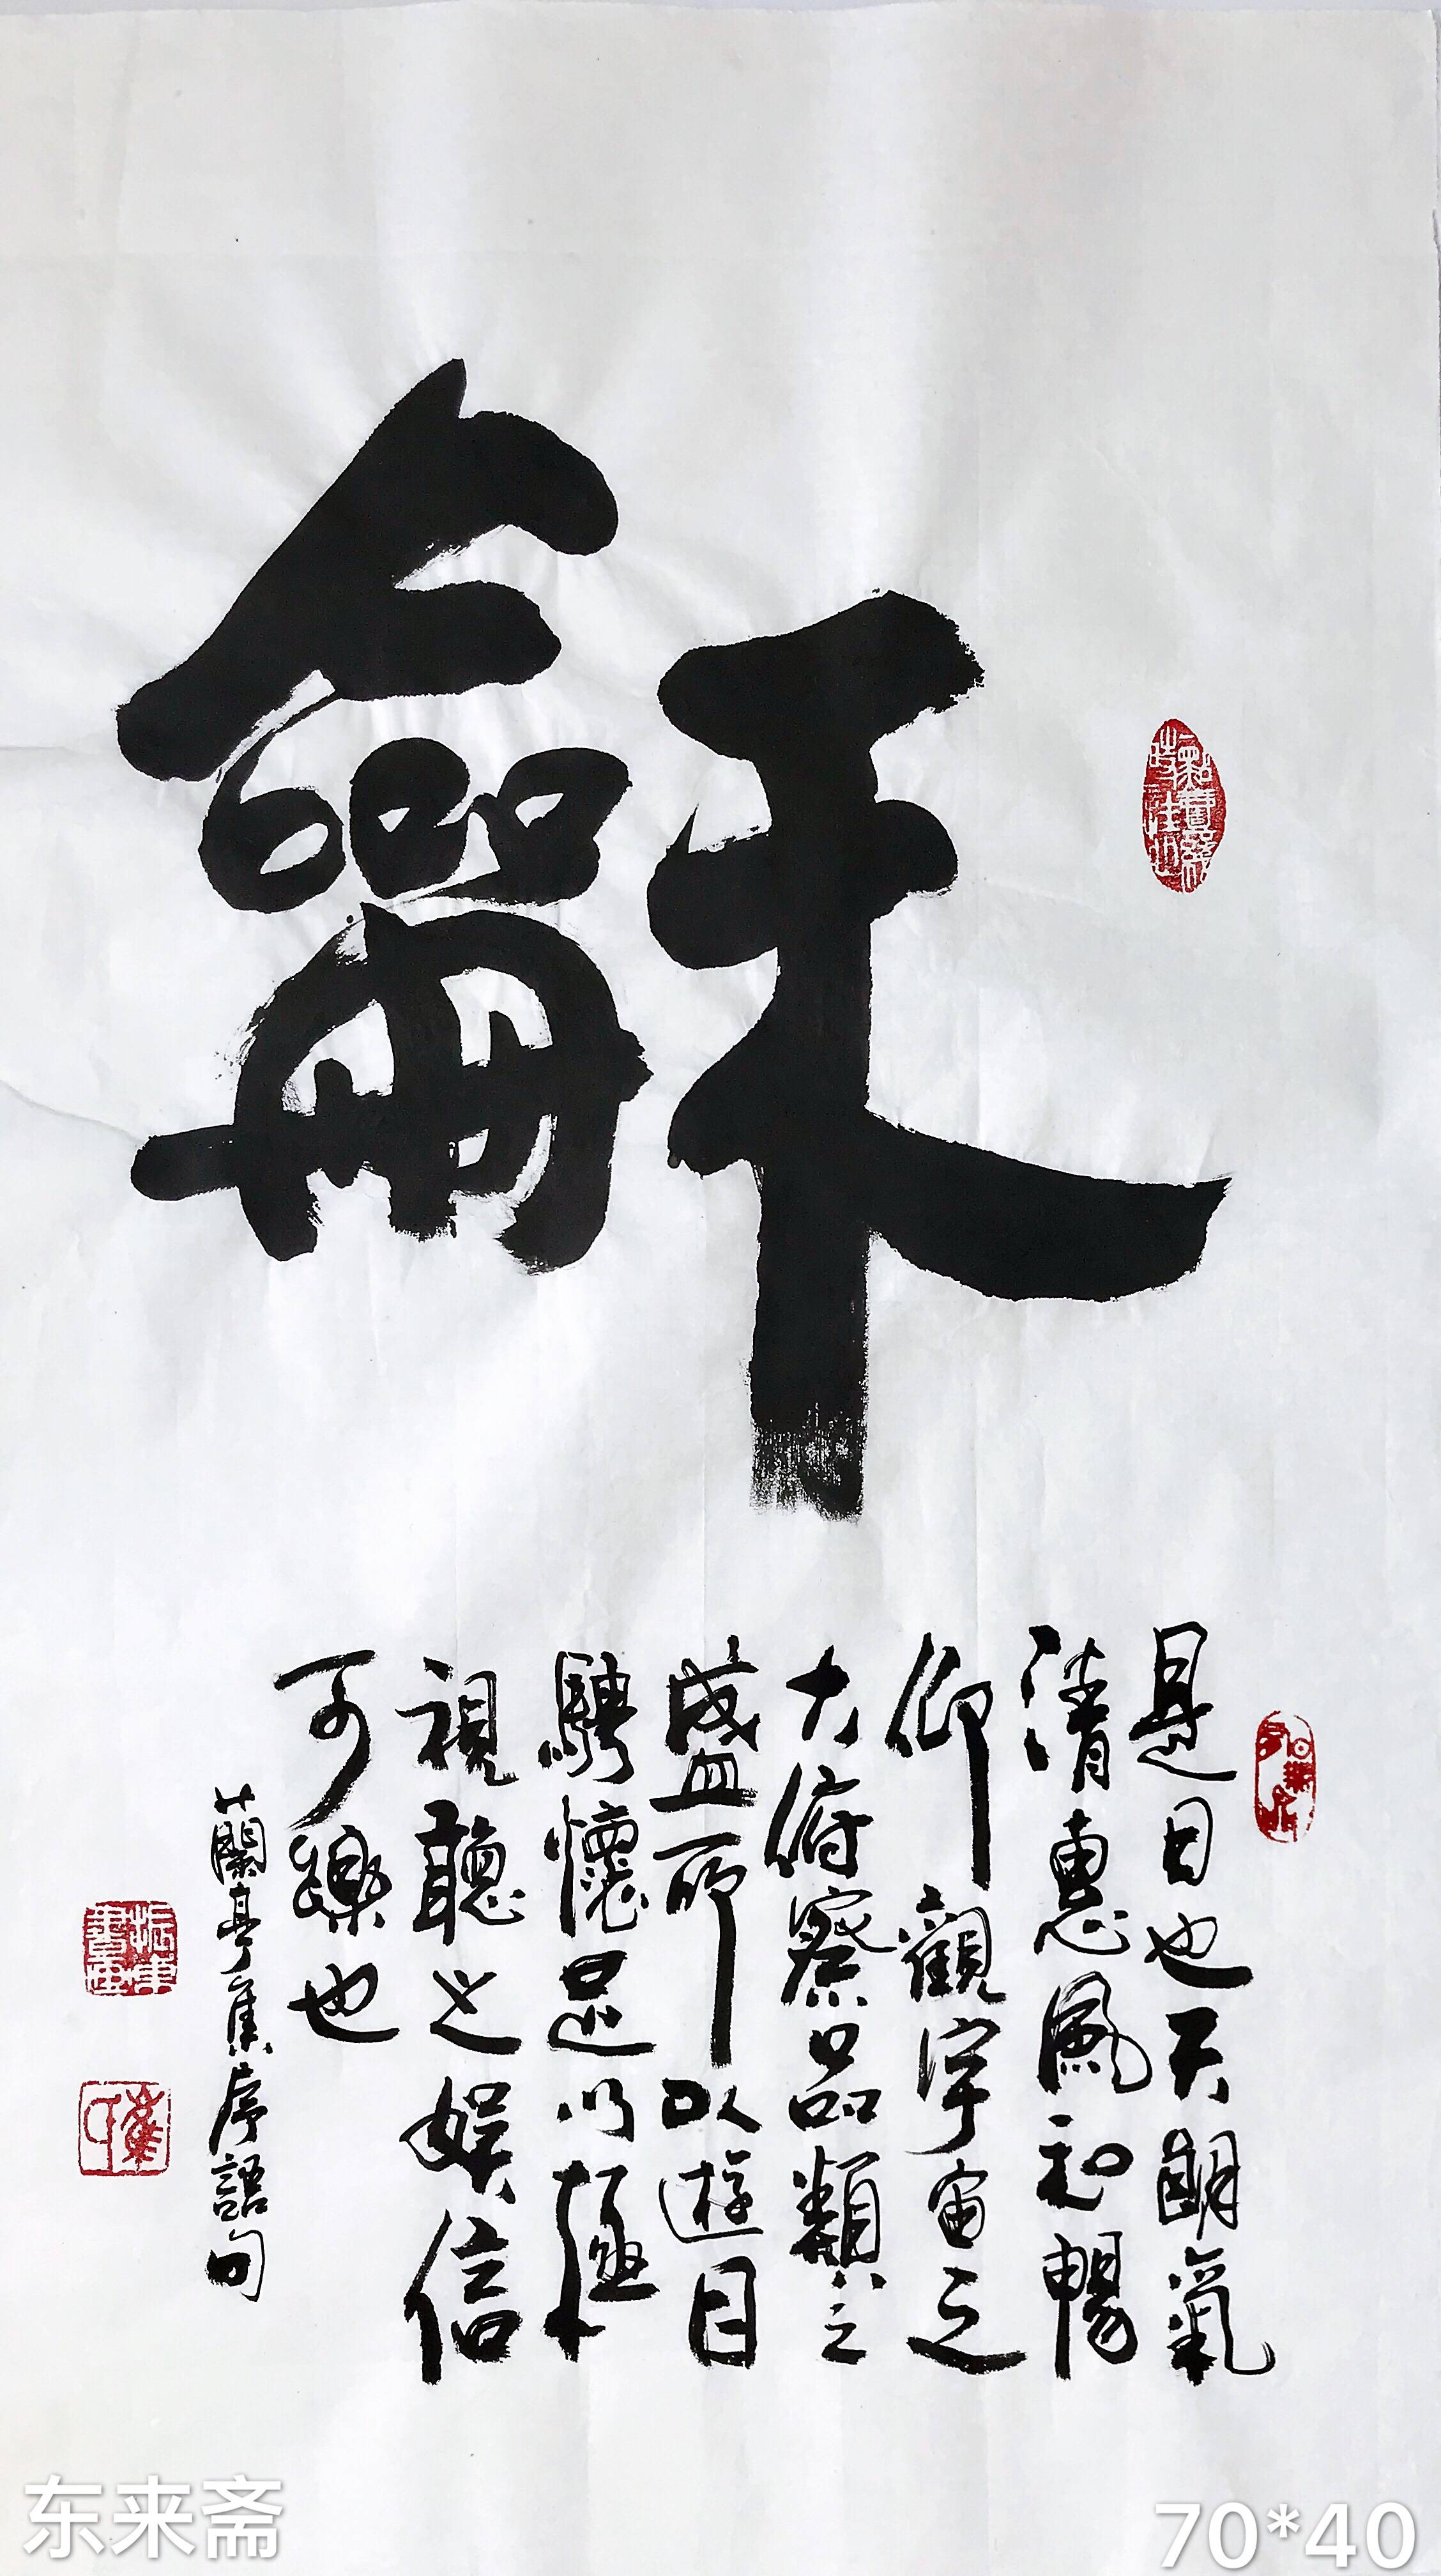 龢
是日也天朗氣
清惠風和暢
仰觀宇宙之
大俯察品類之
盛所以遊目
騁懷足以極
視聽之娛信
可樂也
蘭亭集序語句
东来斋
70*40